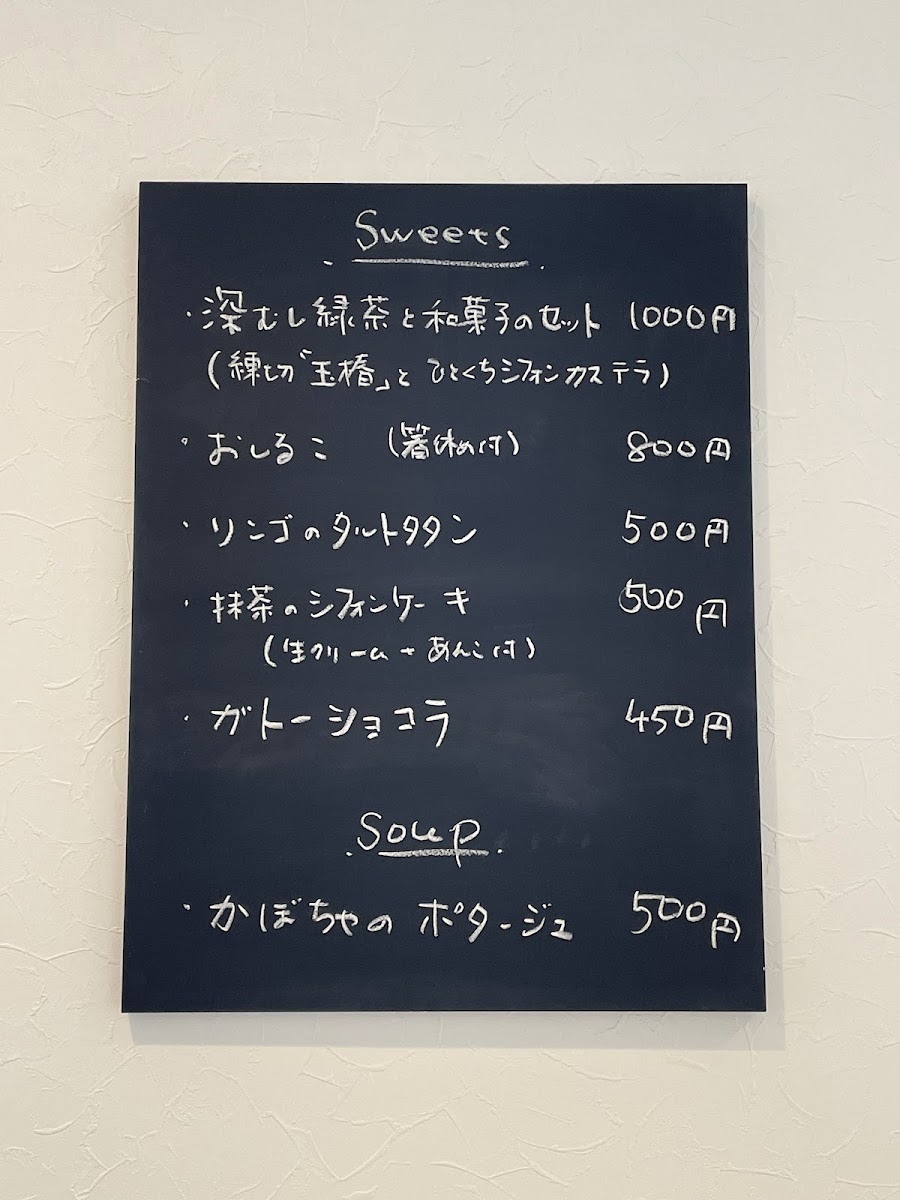 Sweets
・深むし緑茶と和菓子のセット 1000円
(練切「玉椿」と ひとくちシフォンカステラ)
・おしるこ (箸休め付) 800円
・リンゴのタルトタタン 500円
・抹茶のシフォンケーキ 500円
(生クリーム + あんこ付)
・ガトーショコラ 450円
Soup
・かぼちゃの ポタージュ 500円